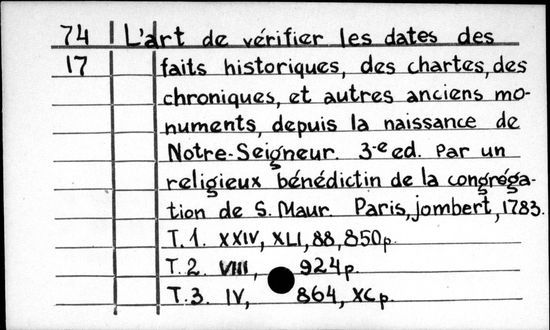 74 L'art de vérifier les dates des
17 faits historiques, des chartes, des
chroniques, et autres anciens mo-
numents, depuis la naissance de
Notre-Seigneur. 3-e ed. Par un
religieux bénédictin de la congréga-
tion de S. Maur. Paris, jombert, 1783.
T. 1. XXIV, XLI, 88, 850 p.
T. 2. VIII, 924 p.
T. 3. IV, 864, XC p.